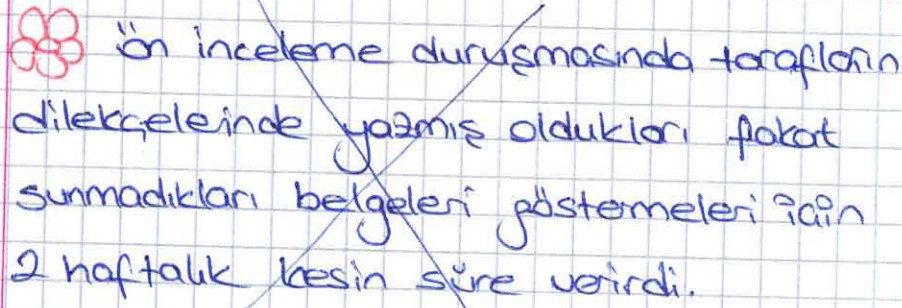 ön inceleme duruşmasında tarafların
dilekçeleinde yazmış oldukları fakat
sunmadıkları belgeleri göstemeleri için
2 haftalık kesin süre verirdi.